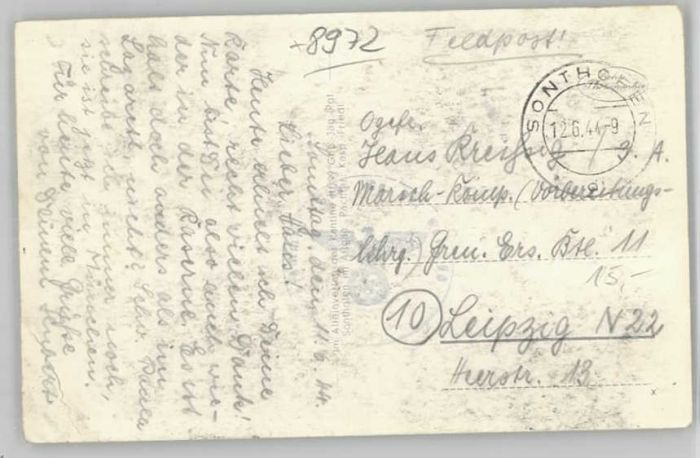 -8972
Feldpost!
SONTHOFEN
12.6.44-9
Ogefr.
Hans / z. A.
Marsch-Komp. (Vorbereitungs-
lehrg.) Gren. Ers. Btl. 11
15,-
(10) Leipzig N 22
Heerstr. 13
Sonntag, den 11.6.44.
Lieber
Heute erhielt ich Deine
Karte, recht vielen Dank!
Nun bist Du also auch wie-
der in der Kaserne. Es ist
halt doch anders als im
Lazarett, nicht? Schw. Paula
schreibt immer noch,
sie ist jetzt in München.
Für heute viele Grüße
von Deinem